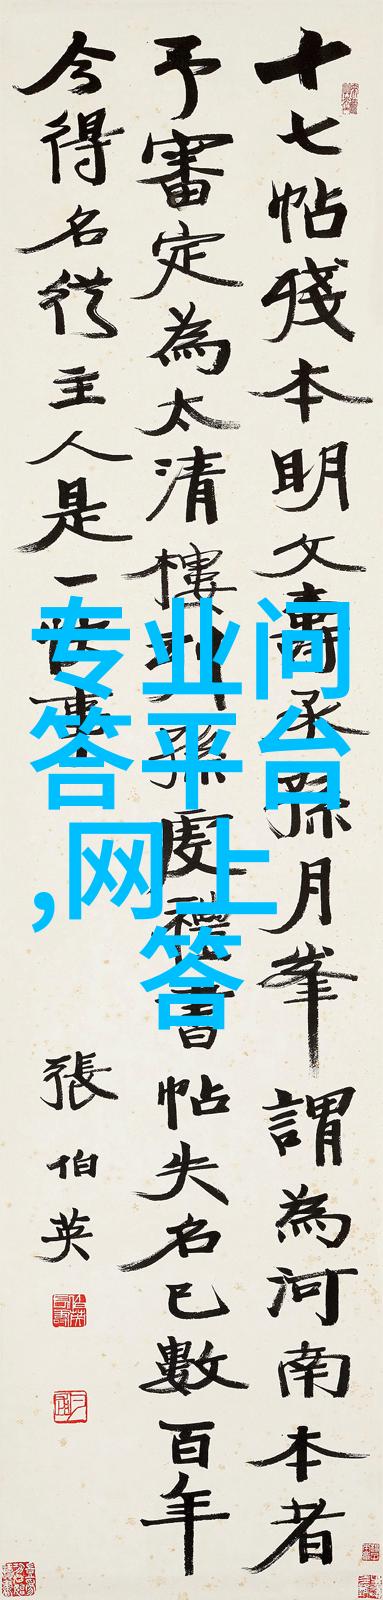 十七帖殘本明文壽承孫月峯謂為河南本者
予審定為太清樓刊孫虔禮書帖失名已數百年
今得名從主人是一快事
張伯英
专业问
答平台
,网上
答